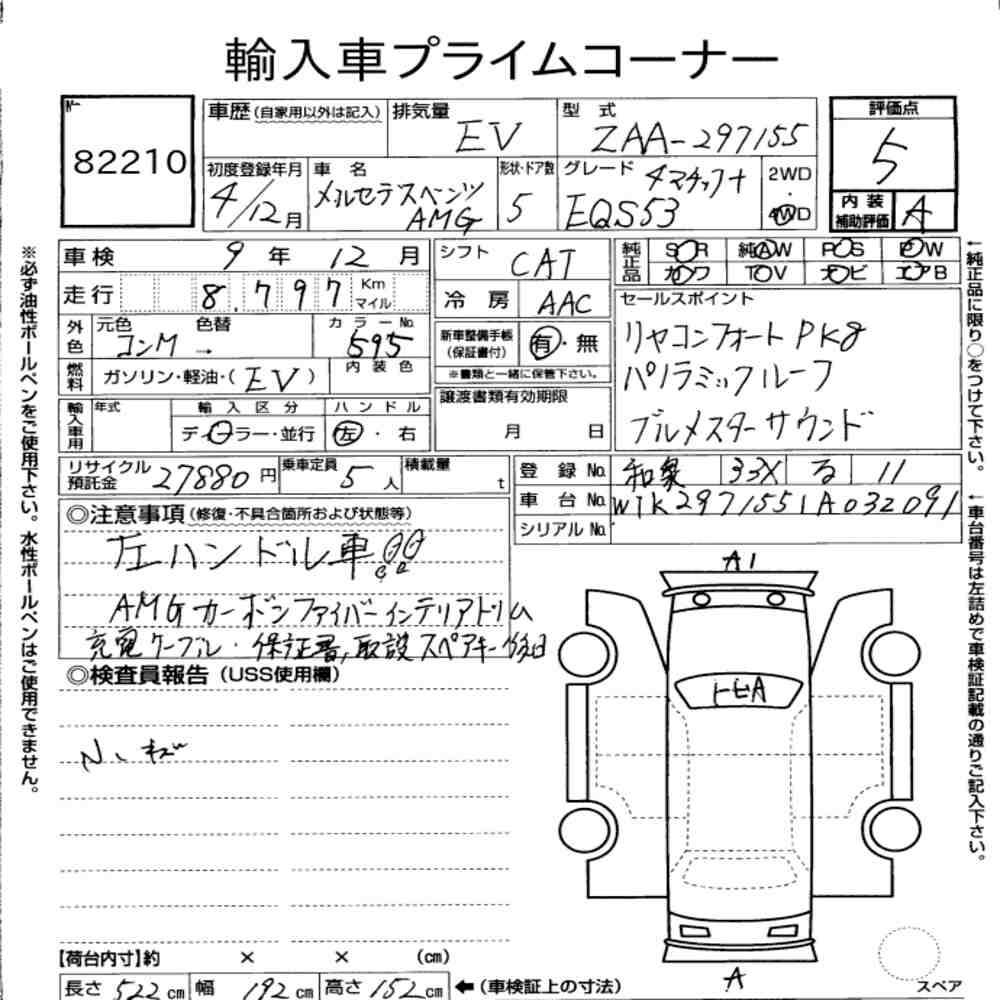 輸入車プライムコーナー
No.
82210
車歴(自家用以外は記入)
排気量
EV
型式
ZAA-297155
評価点
5
内装
補助評価
A
初度登録年月
4/12月
車名
メルセデスベンツ
AMG
形状・ドア数
5
グレード
4マチック+
EQS53
2WD
・
4WD
車検 9年 12月
走行 8,797 Km マイル
シフト
CAT
冷房
AAC
純正品
SR 純AW PS PW
カワ TV ナビ エアB
外色
元色 色替
コンM →
カラーNo.
595
内装色
燃料
ガソリン・軽油・(EV)
新車整備手帳
(保証書付)
有・無
※書類と一緒に保管下さい。
セールスポイント
リヤコンフォートPKg
パノラミックルーフ
ブルメスターサウンド
輸入車用
年式
輸入区分
ディーラー・並行
ハンドル
左・右
譲渡書類有効期限
月 日
リサイクル
預託金
27880円
乗車定員
5人
積載量
t
登録No. 和泉 33X る 11
車台No. W1K2971551A032091
シリアルNo.
◎注意事項(修復・不具合箇所および状態等)
左ハンドル車
AMGカーボンファイバーインテリアトリム
充電ケーブル・保証書,取説スペアキー後日
◎検査員報告(USS使用欄)
A1
トビA
A
スペア
【荷台内寸】約 × × (cm)
長さ 522cm 幅 192cm 高さ 152cm ←(車検証上の寸法)
※必ず油性ボールペンをご使用下さい。水性ボールペンはご使用できません。
←純正品に限り○をつけて下さい。
←車台番号は左詰めで車検証記載の通りご記入下さい。